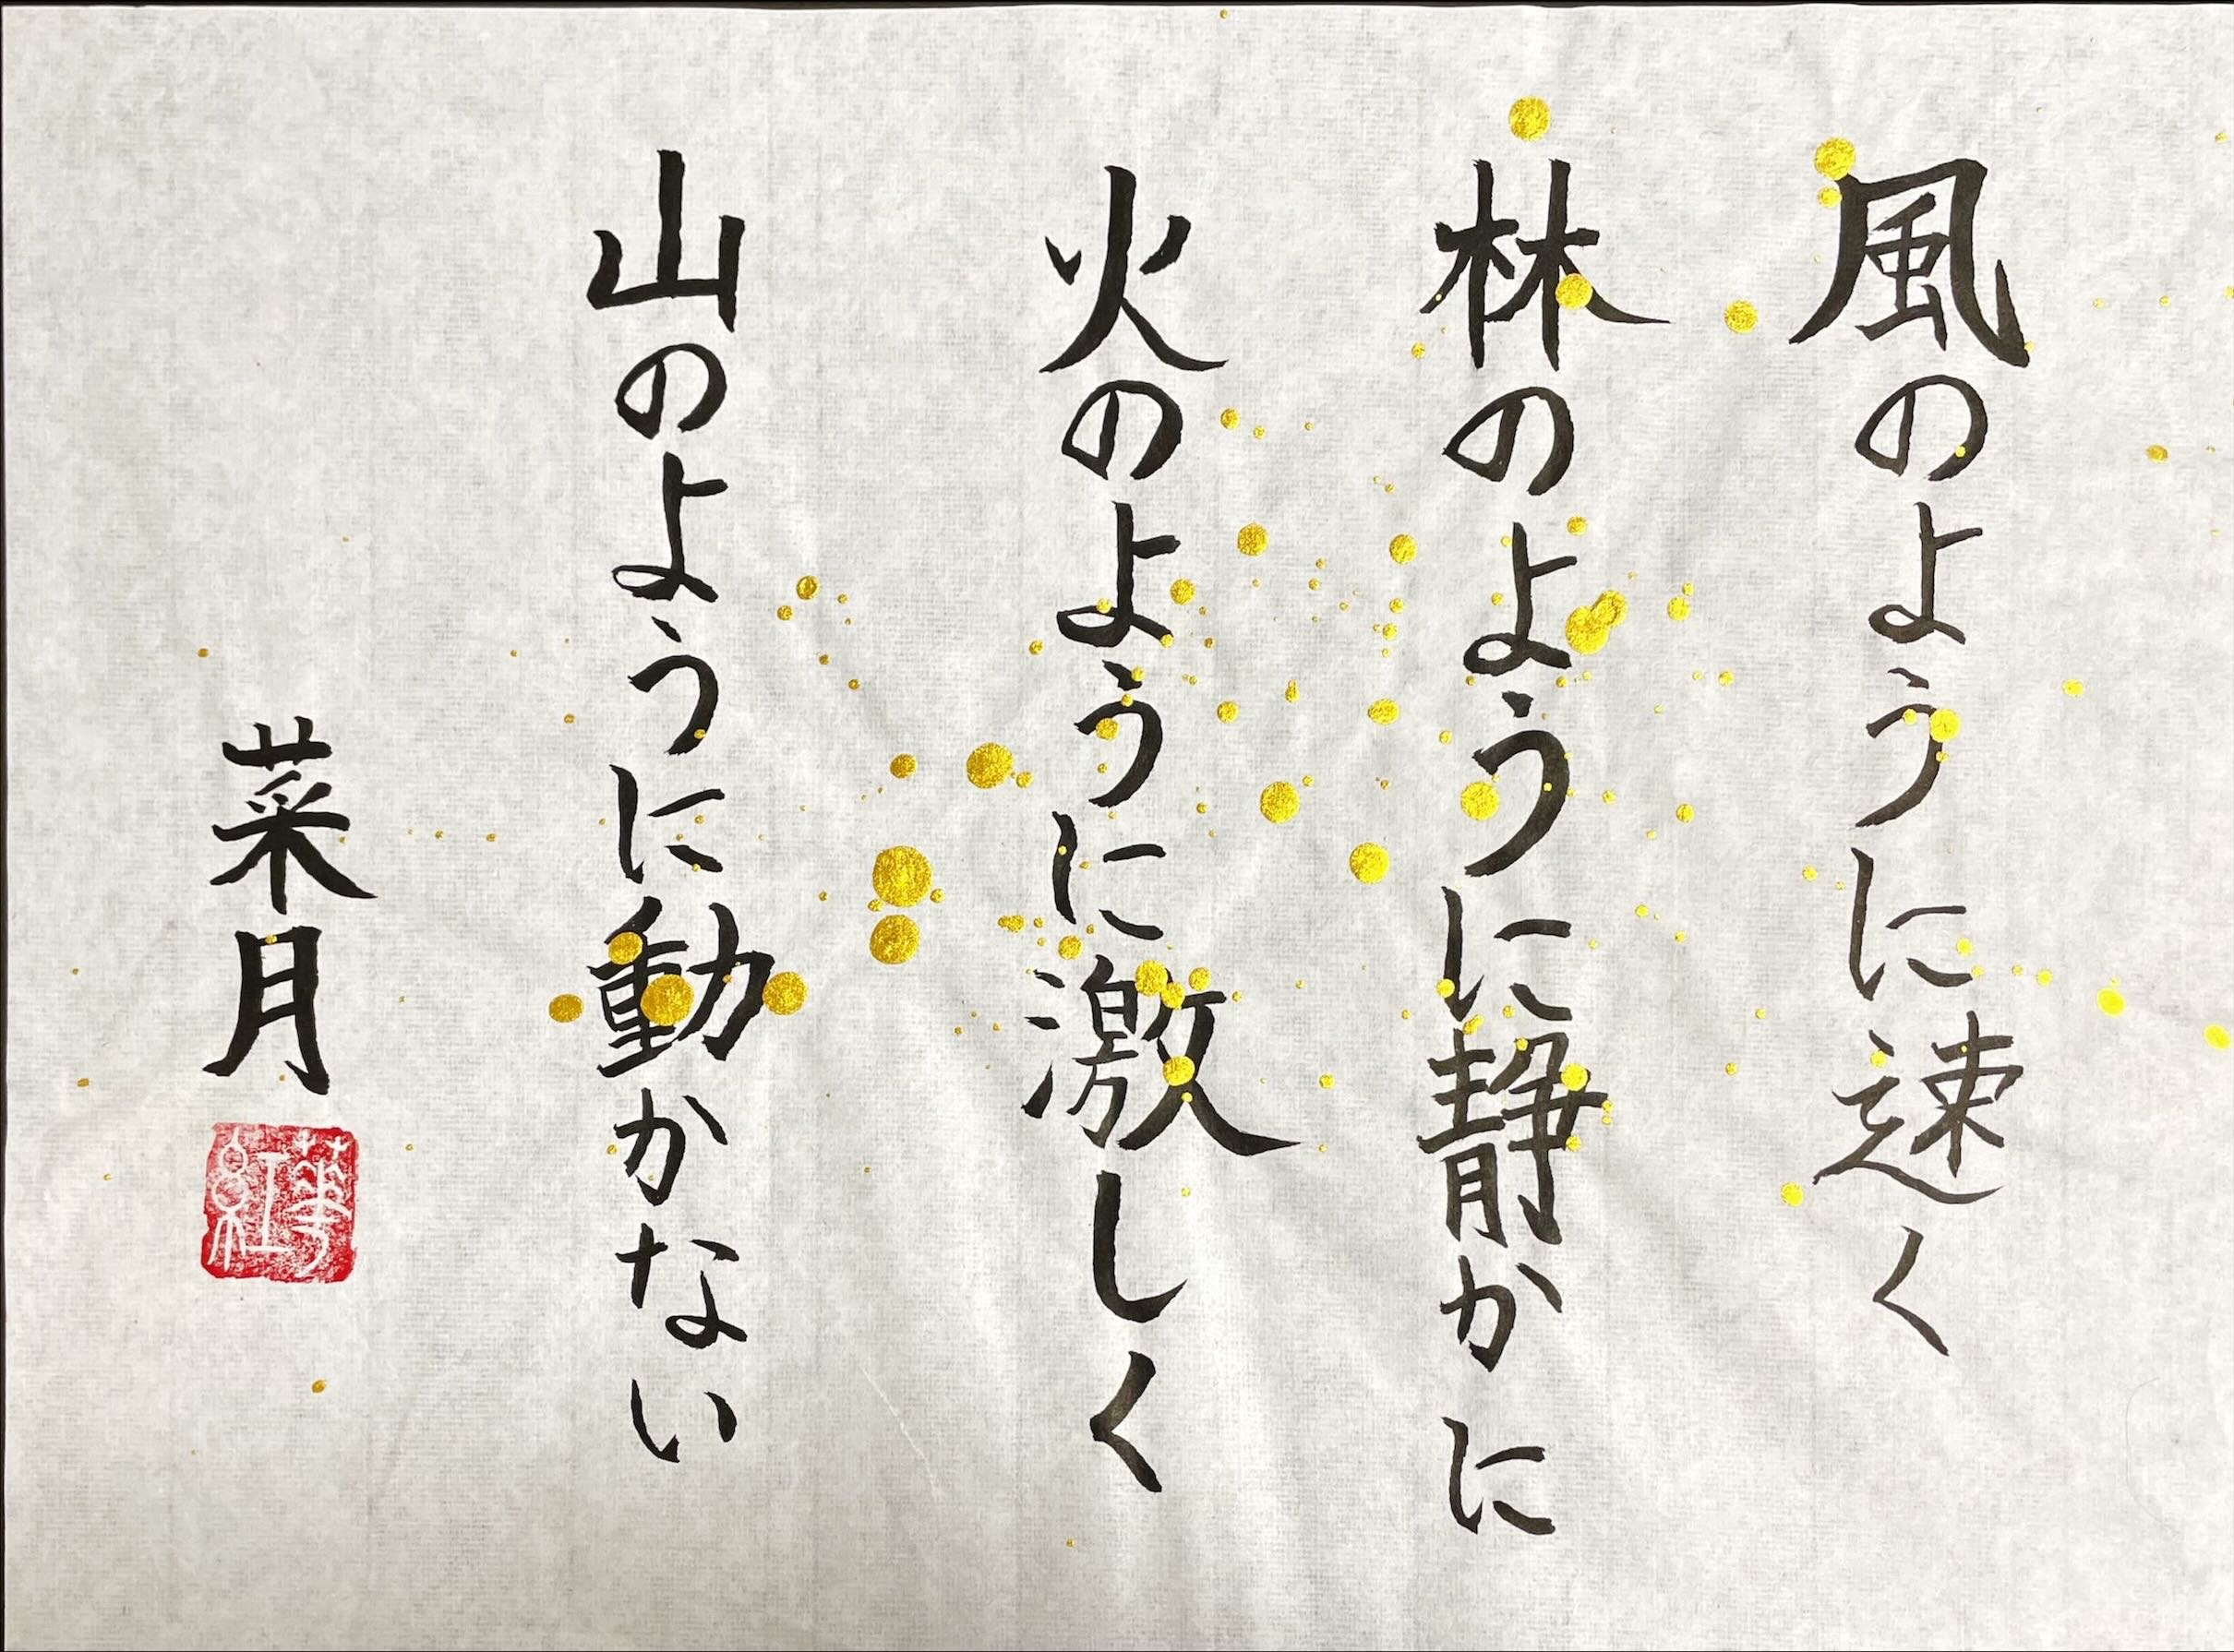 風のように速く
林のように静かに
火のように激しく
山のように動かない
菜月
華紅